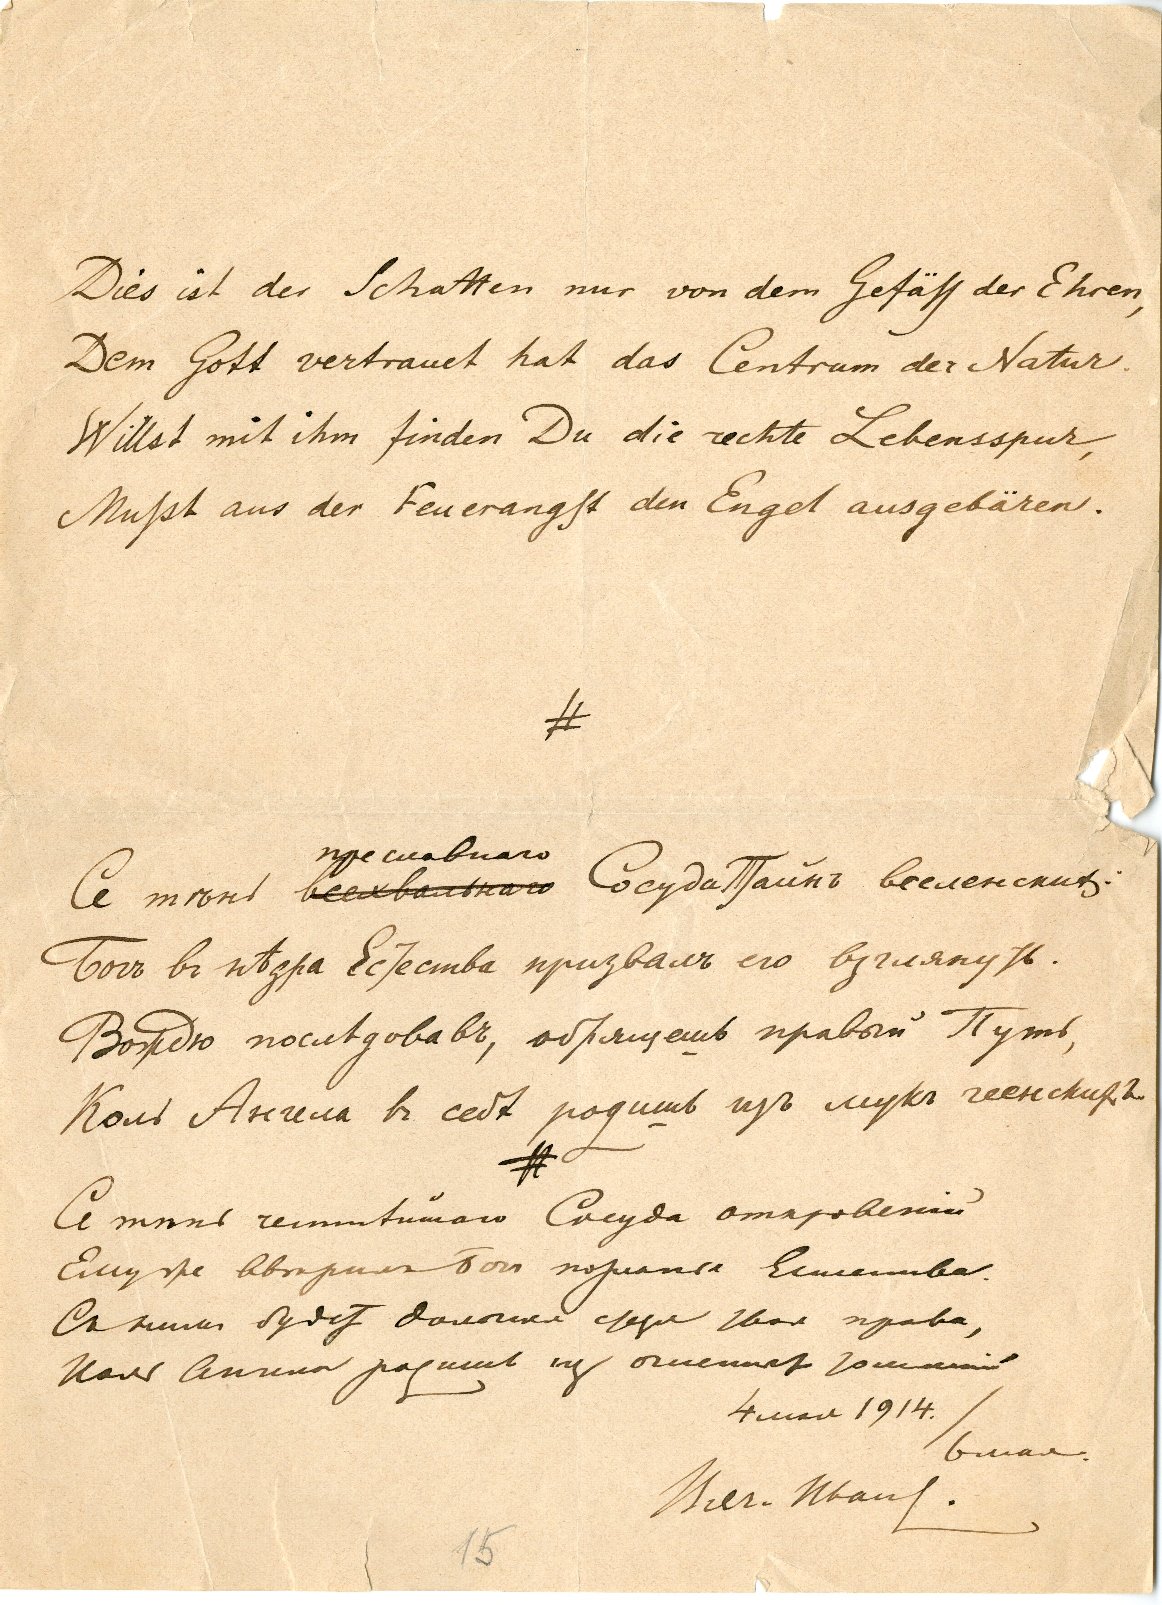 Dies ist der Schatten nur von dem Gefäß der Ehren,
Dem Gott vertrauet hat das Centrum der Natur.
Willst mit ihm finden Du die rechte Lebensspur,
Mußt aus der Feuerangst den Engel ausgebären.
#
преславнаго
Се тѣнь всехвальнаго Сосуда Тайнъ вселенскихъ:
Богъ въ нѣдра Естества призвалъ его взглянуть.
Вождю послѣдовавъ, обрящешь правый Путь,
Коль Ангела въ себѣ родишь изъ мукъ геенскихъ.
#
Се тѣнь честнѣйшаго Сосуда откровеній
Ему же ввѣрилъ Богъ Естества.
Съ нимъ будетъ права,
Коль Ангела родишь изъ огненныхъ томленій
4 мая 1914. /
6 мая.
Вяч. Иванов.
15